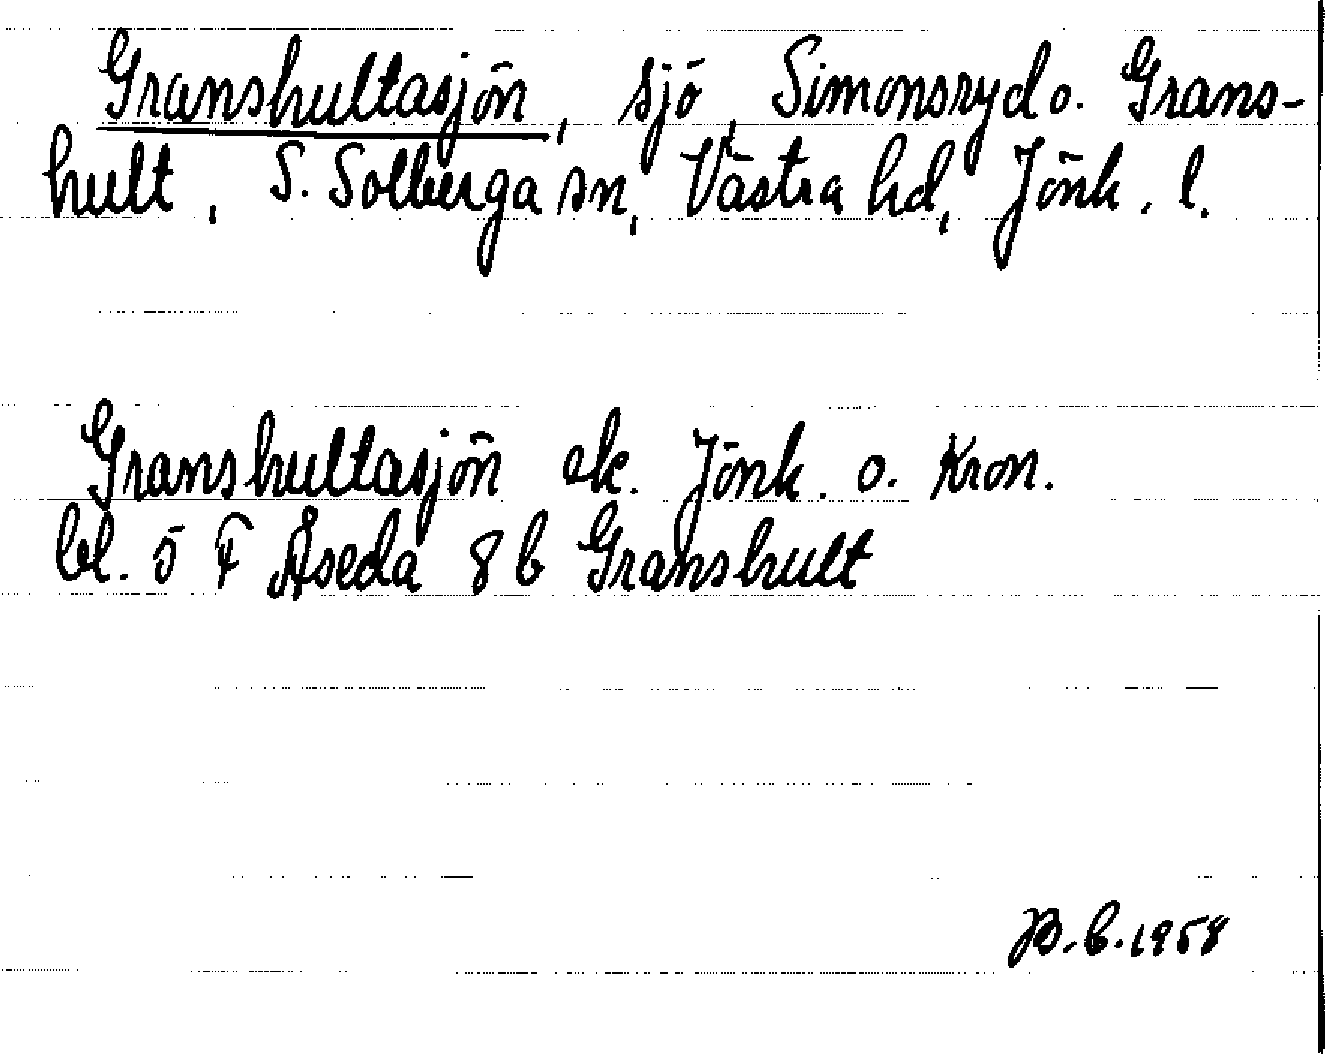 Granshultasjön, sjö, Simonsryd o. Grans-
hult, S. Solberga sn, Västra hd, Jönk. l.
Granshultasjön ek. Jönk. o. Kron.
bl. 5 F Åseda 8 b Granshult
B. 1958